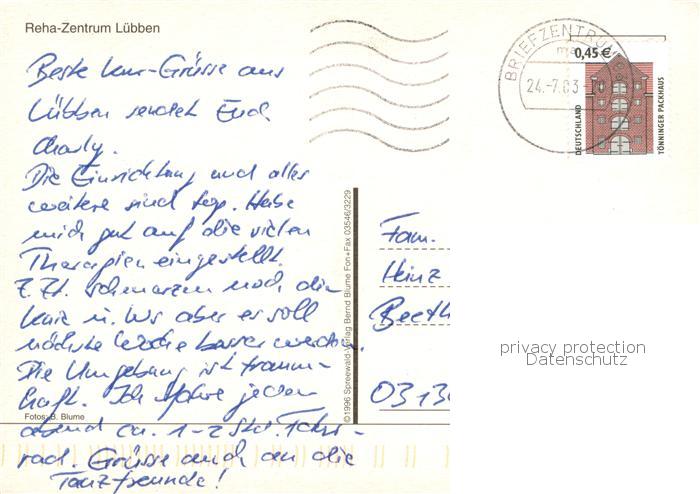 Reha-Zentrum Lübben
BRIEFZENTRUM
24.-7.03
0,45 €
DEUTSCHLAND
TÖNNINGER PACKHAUS
Beste Kur-Grüsse aus
Lübben sendet Euch
Charly.
Die Einrichtung und alles
weitere sind top. Habe
mich gut auf die vielen
Therapien eingestellt.
Z.Zt. schmerzen noch die
Knie u. Ws aber es soll
nächste Woche besser werden.
Die Umgebung ist traum-
haft. Ich fahre jeden
Abend ca. 1-2 Std Fahr-
rad. Grüsse auch an die
Tanzfreunde!
Fotos: B. Blume
©1996 Spreewald-Verlag Bernd Blume Fon+Fax 03546/3229
Fam.
Heinz
Beeth
0313
privacy protection
Datenschutz